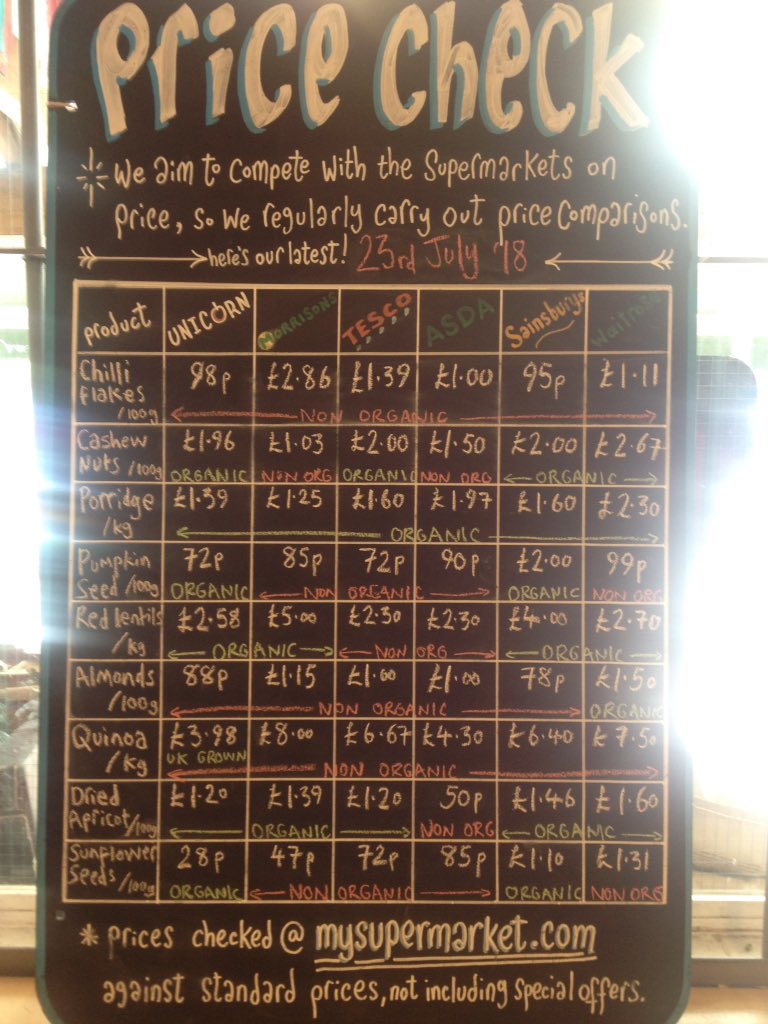 Price Check
We aim to compete with the Supermarkets on
price, so we regularly carry out price comparisons.
here's our latest! 23rd July '18
product UNICORN MORRISONS TESCO ASDA Sainsburys Waitrose
Chilli flakes /100g 98p £2.86 £1.39 £1.00 95p £1.11
NON ORGANIC
Cashew Nuts /100g £1.96 £1.03 £2.00 £1.50 £2.00 £2.67
ORGANIC NON ORG ORGANIC NON ORG ORGANIC
Porridge /kg £1.39 £1.25 £1.60 £1.97 £1.60 £2.30
ORGANIC
Pumpkin Seed /100g 72p 85p 72p 90p £2.00 99p
ORGANIC NON ORGANIC ORGANIC NON ORG
Red lentils /kg £2.58 £5.00 £2.30 £2.30 £4.00 £2.70
ORGANIC NON ORG ORGANIC
Almonds /100g 88p £1.15 £1.00 £1.00 78p £1.50
NON ORGANIC ORGANIC
Quinoa /kg £3.98 £8.00 £6.67 £4.30 £6.40 £7.50
UK GROWN NON ORGANIC
Dried Apricot /100g £1.20 £1.39 £1.20 50p £1.46 £1.60
ORGANIC NON ORG ORGANIC
Sunflower Seeds /100g 28p 47p 72p 85p £1.10 £1.31
ORGANIC NON ORGANIC ORGANIC NON ORG
* prices checked @ mysupermarket.com
against standard prices, not including special offers.